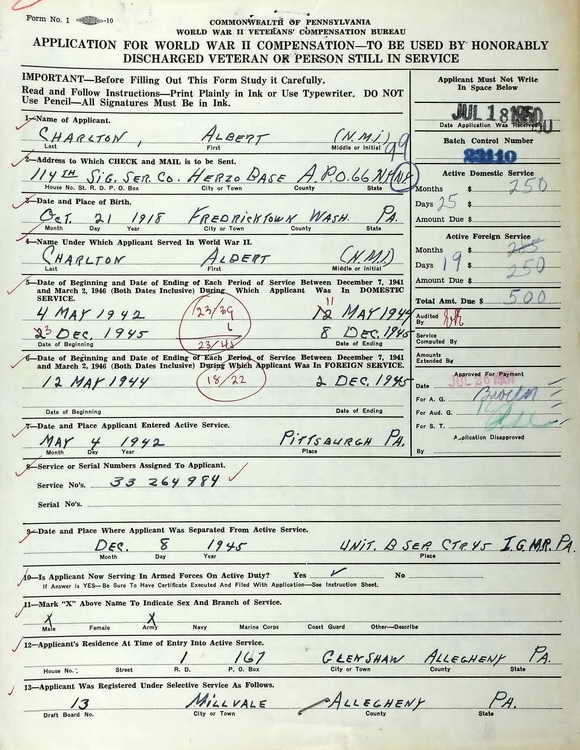 Form No. 1
COMMONWEALTH OF PENNSYLVANIA
WORLD WAR II VETERANS' COMPENSATION BUREAU
APPLICATION FOR WORLD WAR II COMPENSATION—TO BE USED BY HONORABLY
DISCHARGED VETERAN OR PERSON STILL IN SERVICE
IMPORTANT—Before Filling Out This Form Study it Carefully.
Read and Follow Instructions—Print Plainly in Ink or Use Typewriter. DO NOT
Use Pencil—All Signatures Must Be in Ink.
1—Name of Applicant.
CHARLTON, ALBERT (N.M.I.)
Last First Middle or Initial
2—Address to Which CHECK and MAIL is to be Sent.
114TH SIG. SER. CO. HERZO BASE A.P.O. 66 N.Y. N.Y.
House No. St. R. D. P. O. Box City or Town County State
3—Date and Place of Birth.
OCT. 21 1918 FREDRICKTOWN WASH. PA.
Month Day Year City or Town County State
4—Name Under Which Applicant Served In World War II.
CHARLTON ALBERT (N.M.I.)
Last First Middle or Initial
5—Date of Beginning and Date of Ending of Each Period of Service Between December 7, 1941
and March 2, 1946 (Both Dates Inclusive) During Which Applicant Was In DOMESTIC
SERVICE.
4 MAY 1942 23/39 11 12 MAY 1944
23 DEC. 1945 8 DEC. 1945
Date of Beginning 23/45 Date of Ending
6—Date of Beginning and Date of Ending of Each Period of Service Between December 7, 1941
and March 2, 1946 (Both Dates Inclusive) During Which Applicant Was In FOREIGN SERVICE.
12 MAY 1944 18/22 2 DEC. 1945
Date of Beginning Date of Ending
7—Date and Place Applicant Entered Active Service.
MAY 4 1942 PITTSBURGH PA.
Month Day Year Place
8—Service or Serial Numbers Assigned To Applicant.
Service No's. 33 264 984
Serial No's.
9—Date and Place Where Applicant Was Separated From Active Service.
DEC. 8 1945 UNIT. B SER CTR 45 I.G.M.R. PA.
Month Day Year Place
10—Is Applicant Now Serving In Armed Forces On Active Duty? Yes ✓ No
If Answer is YES—Be Sure To Have Certificate Executed And Filed With Application—See Instruction Sheet.
11—Mark "X" Above Name To Indicate Sex And Branch of Service.
X X
Male Female Army Navy Marine Corps Coast Guard Other—Describe
12—Applicant's Residence At Time of Entry Into Active Service.
1 167 GLENSHAW ALLEGHENY PA.
House No. Street R. D. P. O. Box City or Town County State
13—Applicant Was Registered Under Selective Service As Follows.
13 MILLVALE ALLEGHENY PA.
Draft Board No. City or Town County State
Applicant Must Not Write
In Space Below
JUL 18 1950
Date Application Was Received
Batch Control Number
Active Domestic Service
Months $ 250
Days 25 $
Amount Due $
Active Foreign Service
Months $
Days 19 $ 250
Amount Due $
Total Amt. Due $ 500
Audited
By
Service
Computed By
Amounts
Extended By
Approved For Payment
Date JUL 26
For A. G.
For Aud. G.
For S. T.
Application Disapproved
By